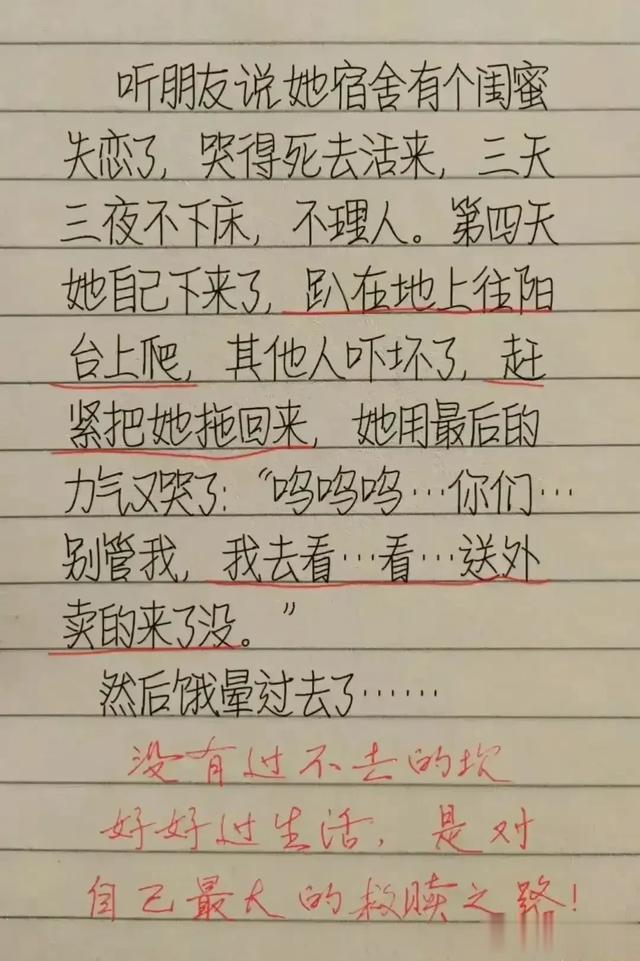 听朋友说她宿舍有个闺蜜
失恋了，哭得死去活来，三天
三夜不下床，不理人。第四天
她自己下来了，趴在地上往阳
台上爬，其他人吓坏了，赶
紧把她拖回来，她用最后的
力气又哭了：“呜呜呜…你们…
别管我，我去看…看…送外
卖的来了没。”
然后饿晕过去了……
没有过不去的坎
好好过生活，是对
自己最大的救赎之路！